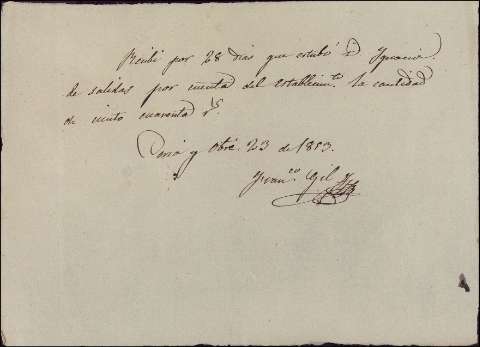 Recibi por 28 dias que estubó Dn Ignacio
de salidas por cuenta del establecimto. la cantidad
de ciento cuarenta rs.
y Obre 23 de 1853.
Franco Gil